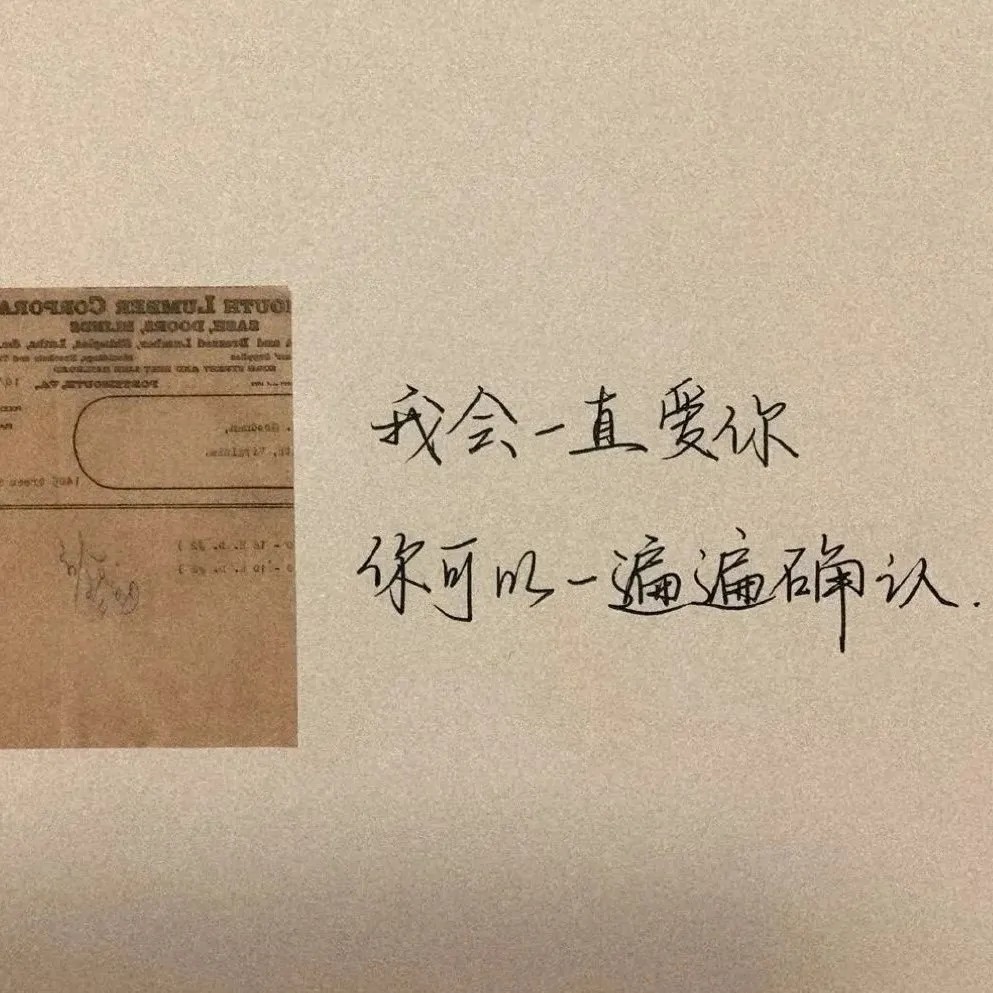 OUTH LUMBER CORPORA
SASH, DOORS, BLINDS
and Dressed Lumber, Shingles, Laths, &c.
PORTSMOUTH, VA.
Goodman,
Virginia.
1405 Green S
我会一直爱你
你可以一遍遍确认.